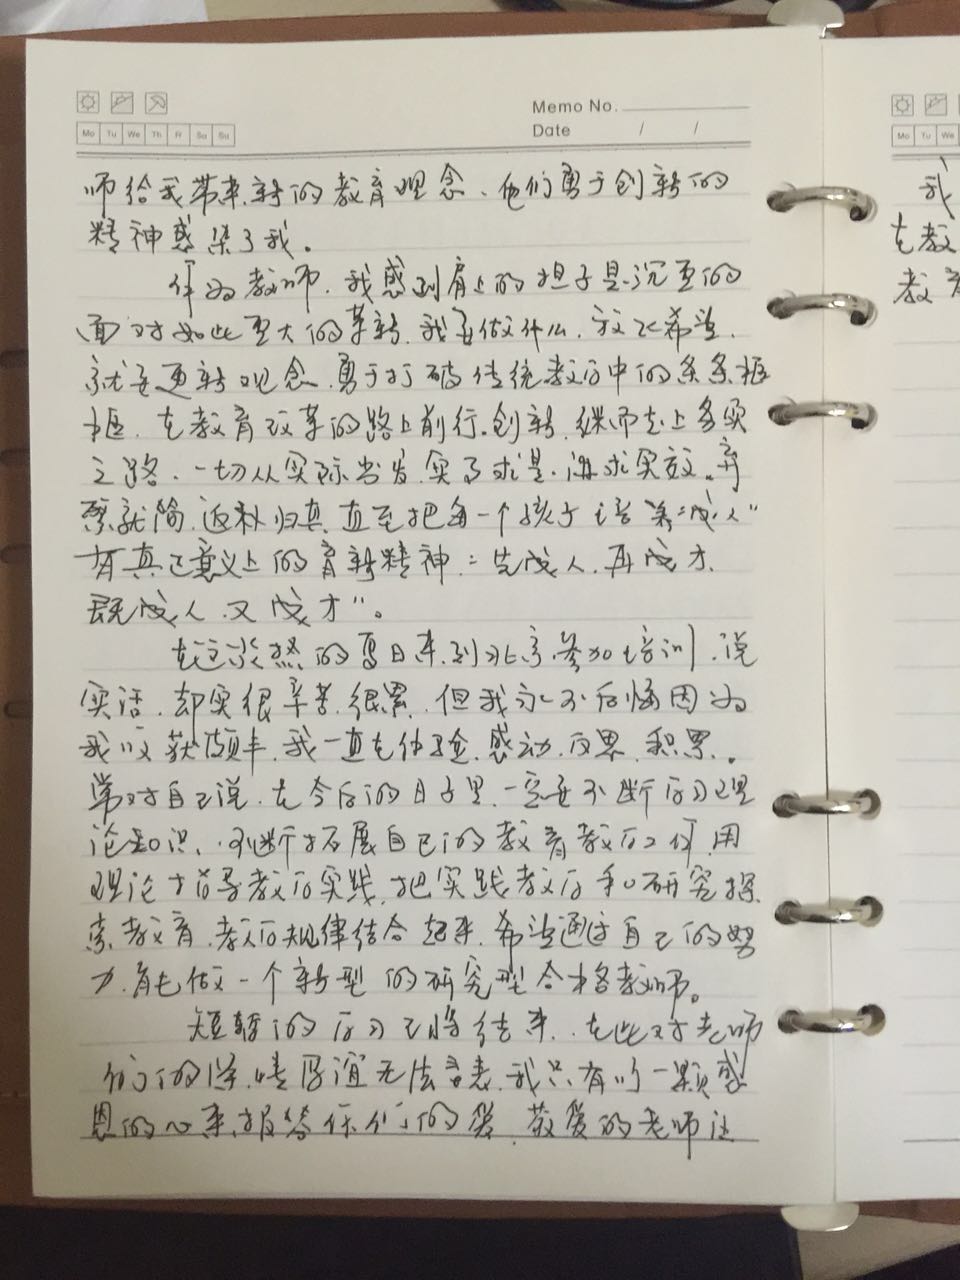 Memo No.
Date / /
Mo Tu We Th Fr Sa Su
师给我带来新的教育观念、他们勇于创新的
精神感染了我。
作为教师，我感到肩上的担子是沉重的
面对如此重大的革新，我要做什么，
就要更新观念，勇于打破传统教学中的条条框
框，在教育改革的路上前行，创新，继而走上务实
之路，一切从实际出发，实事求是，讲求实效，弃
繁就简，返朴归真，直至把每一个孩子培养“成人”
有真正意义上的育新精神：“先成人，再成才，
既成人，又成才”。
在这炎热的夏日来到北京参加培训，说
实话，却实很辛苦，很累，但我永不后悔因为
我收获颇丰，我一直在体验，感动，反思，积累。
常对自己说，在今后的日子里，一定要不断学习理
论知识，不断拓展自己的教育教学工作，用
理论指导教学实践，把实践教学和研究探
索教育，教学规律结合起来，希望通过自己的努
力，能做一个新型的研究型合格教师。
短暂的学习已将结束，在此对老师
们的深情厚谊无法言表，我只有以一颗感
恩的心来报答你们的爱，敬爱的老师让
Mo Tu We
我
在教
教育